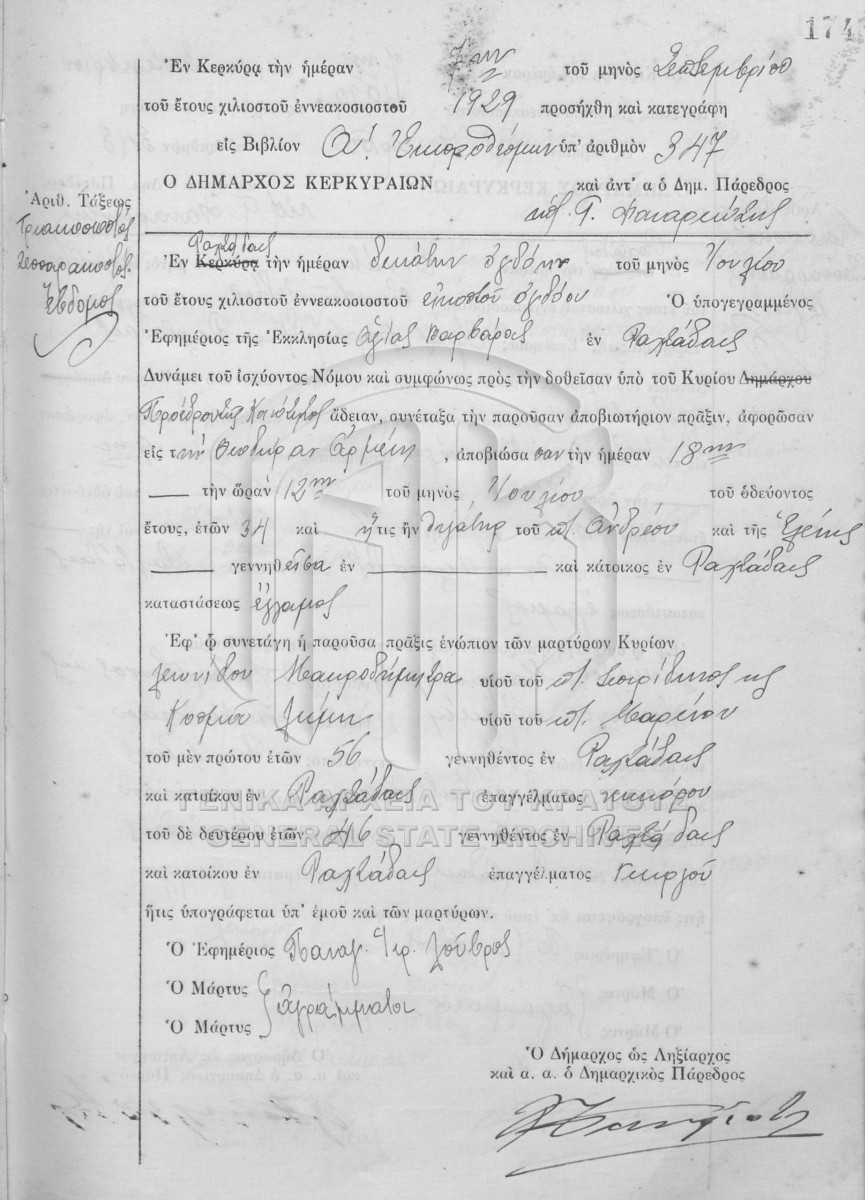 174
Ἐν Κερκύρᾳ τὴν ἡμέραν 7ην τοῦ μηνὸς Σεπτεμβρίου
τοῦ ἔτους χιλιοστοῦ ἐννεακοσιοστοῦ 1929 προσήχθη καὶ κατεγράφη
εἰς Βιβλίον Α! Ἐκπροθέσμων ὑπ' ἀριθμὸν 347
Ο ΔΗΜΑΡΧΟΣ ΚΕΡΚΥΡΑΙΩΝ καὶ ἀντ' α ὁ Δημ. Πάρεδρος
Ἀριθ. Τάξεως
Τριακοσιοστὸς
Τεσσαρακοστὸς
Ἕβδομος
Ραχτάδαις
Ἐν Κερκύρᾳ τὴν ἡμέραν δεκάτην ὀγδόην τοῦ μηνὸς Ἰουλίου
τοῦ ἔτους χιλιοστοῦ ἐννεακοσιοστοῦ εἰκοστοῦ ὀγδόου Ὁ ὑπογεγραμμένος
Ἐφημέριος τῆς Ἐκκλησίας Ἁγίας Βαρβάρας ἐν Ραχτάδαις
Δυνάμει τοῦ ἰσχύοντος Νόμου καὶ συμφώνως πρὸς τὴν δοθεῖσαν ὑπὸ τοῦ Κυρίου Δημάρχου
Προέδρου τῆς Κοινότητος ἄδειαν, συνέταξα τὴν παροῦσαν ἀποβιωτήριον πρᾶξιν, ἀφορῶσαν
εἰς τὴν , ἀποβιώσασαν τὴν ἡμέραν 18ην
τὴν ὥραν 12ην τοῦ μηνὸς Ἰουλίου τοῦ ὁδεύοντος
ἔτους, ἐτῶν 34 καὶ ἥτις ἦν θυγάτηρ τοῦ ποτ. Ἀνδρέου καὶ τῆς Ἑλένης
γεννηθεῖσα ἐν καὶ κάτοικος ἐν Ραχτάδαις
καταστάσεως ἔγγαμος
Ἐφ' ᾧ συνετάγη ἡ παροῦσα πρᾶξις ἐνώπιον τῶν μαρτύρων Κυρίων
Λεωνίδου Μακροδημήτρα υἱοῦ τοῦ ποτ. Σπυρίδωνος κ
Κοσμᾶ υἱοῦ τοῦ ποτ. Μαρίνου
τοῦ μὲν πρώτου ἐτῶν 56 γεννηθέντος ἐν Ραχτάδαις
καὶ κατοίκου ἐν Ραχτάδαις ἐπαγγέλματος
ΓΕΝΙΚΑ ΑΡΧΕΙΑ ΤΟΥ ΚΡΑΤΟΥΣ
τοῦ δὲ δευτέρου ἐτῶν 46 γεννηθέντος ἐν Ραχτάδαις
GENERAL STATE ARCHIVES
καὶ κατοίκου ἐν Ραχτάδαις ἐπαγγέλματος Γεωργοῦ
ἥτις ὑπογράφεται ὑπ' ἐμοῦ καὶ τῶν μαρτύρων.
Ὁ Ἐφημέριος Παναγ.
Ὁ Μάρτυς ἀγράμματοι
Ὁ Μάρτυς
Ὁ Δήμαρχος ὡς Ληξίαρχος
καὶ α. α. ὁ Δημαρχικὸς Πάρεδρος